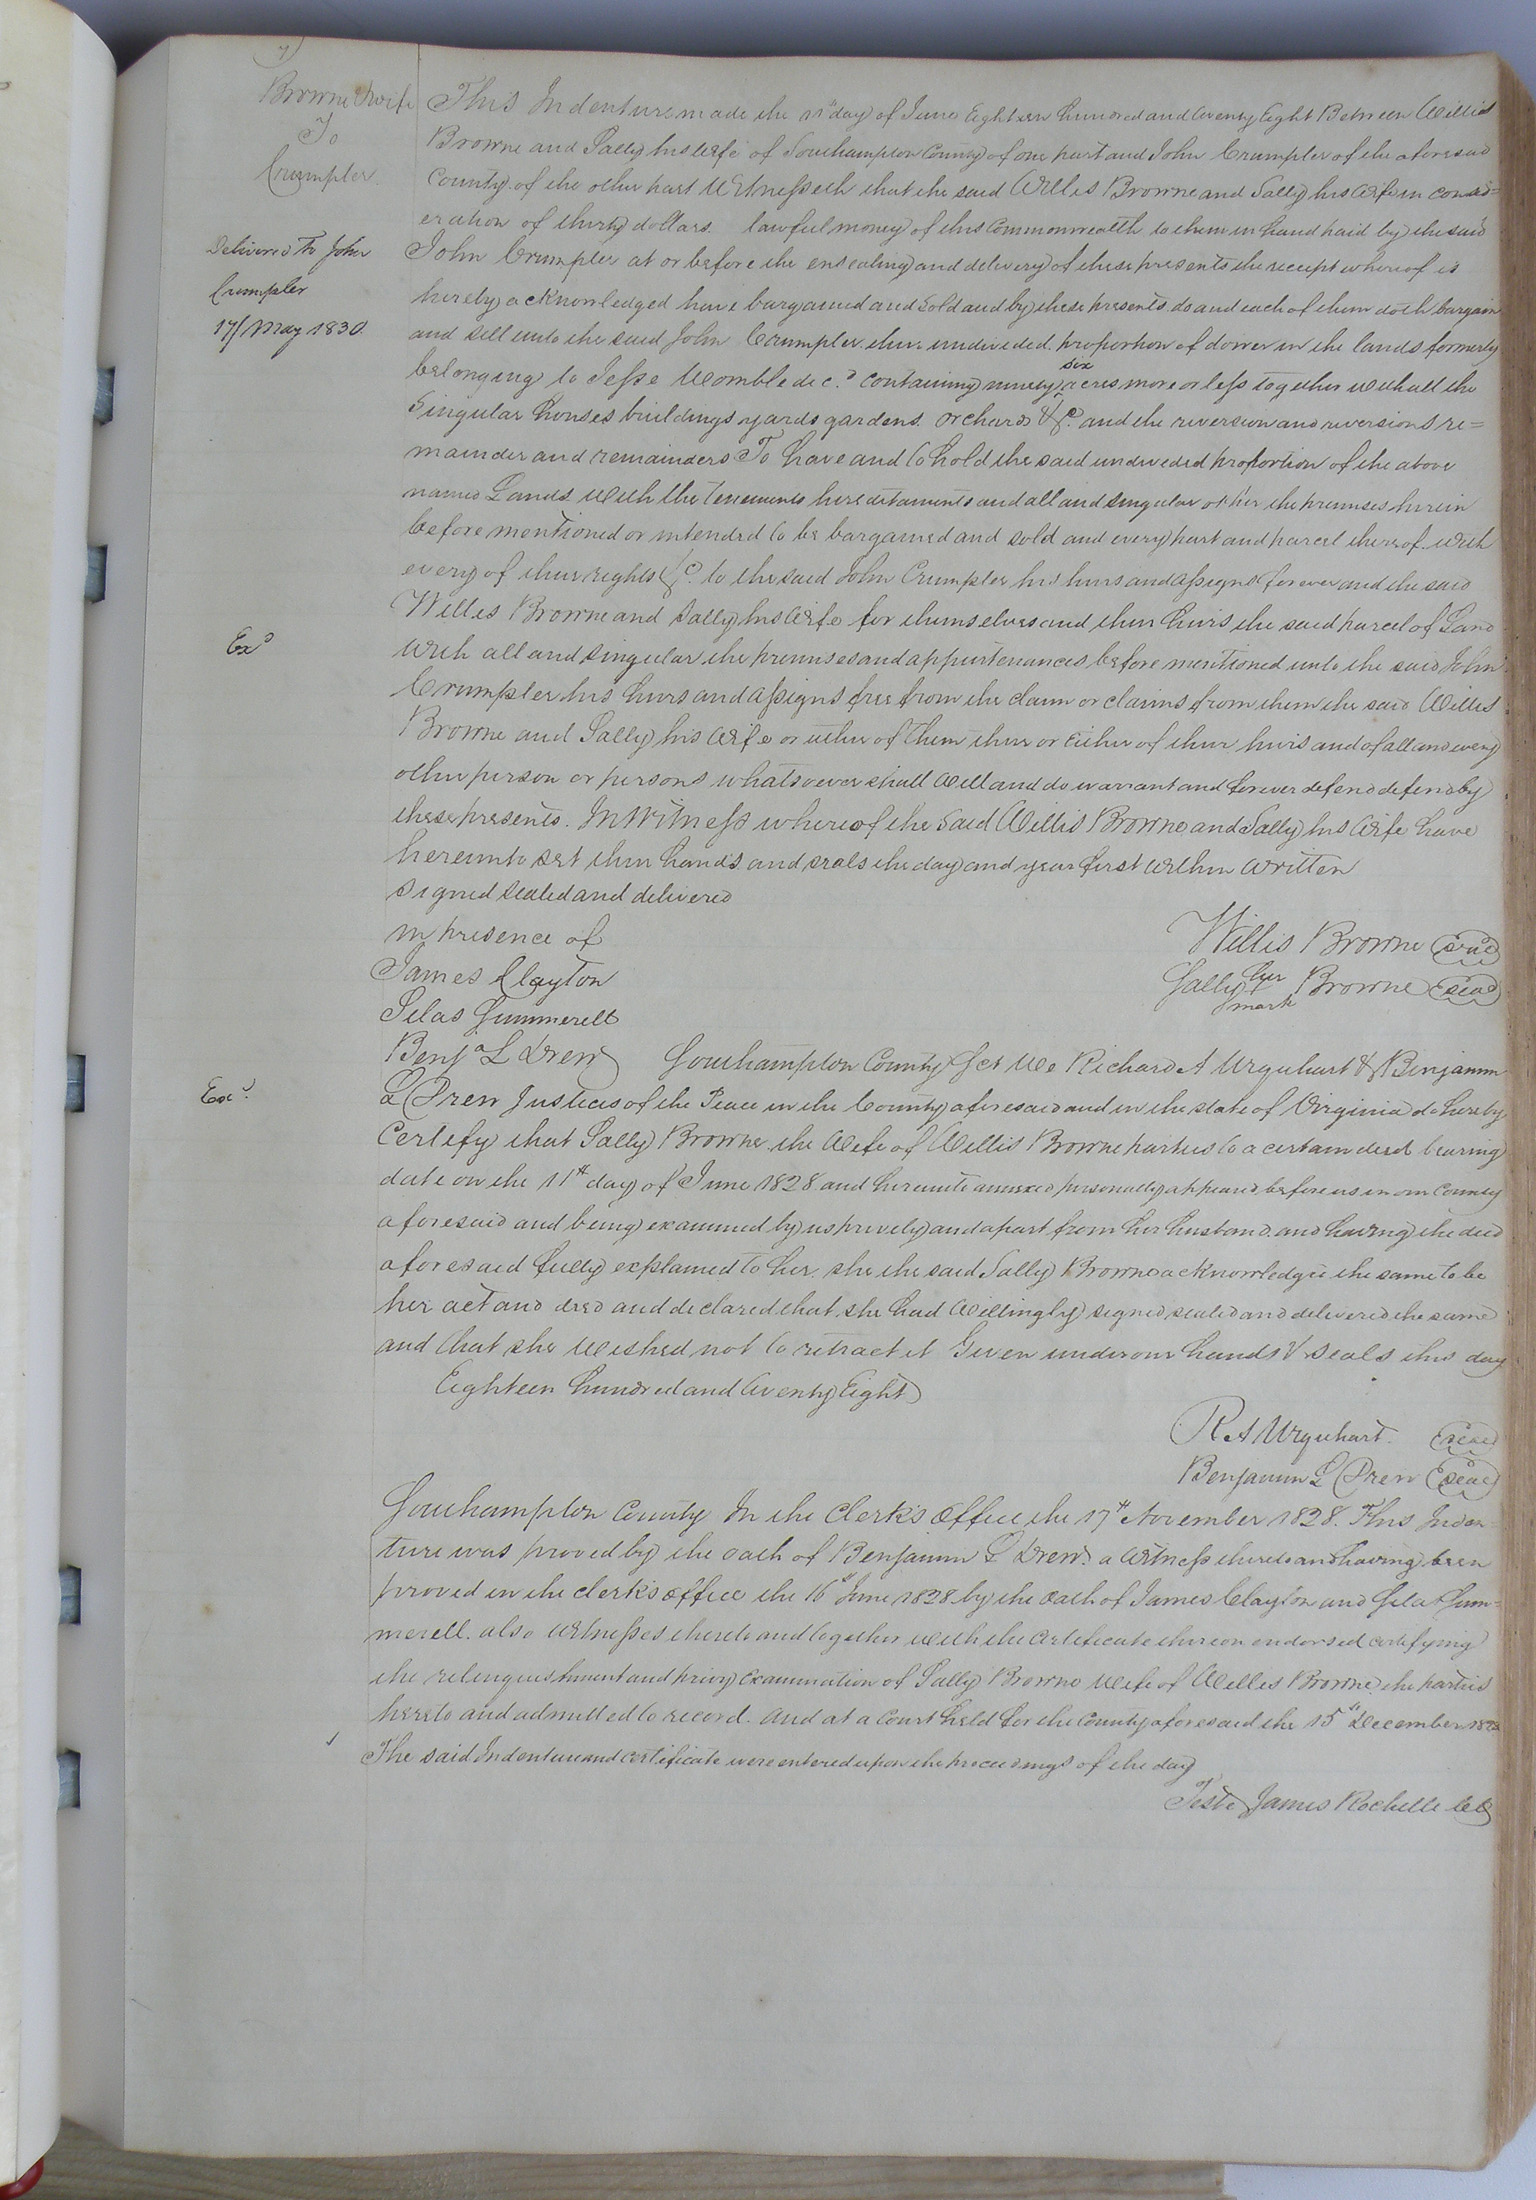 7
Browne & wife
To
Crumpler
Delivered To John
Crumpler
17 May 1830
This Indenture made the 11th day of June Eighteen hundred and twenty Eight Between Willis
Browne and Sally his wife of Southampton County of one part and John Crumpler of the aforesaid
County of the other part Witnesseth that the said Willis Browne and Sally his wife in consid=
eration of thirty dollars lawful money of this Commonwealth to them in hand paid by the said
John Crumpler at or before the ensealing and delivery of these presents the receipt whereof is
hereby acknowledged have bargained and sold and by these presents do and each of them doth bargain
and sell unto the said John Crumpler their undivided proportion of dower in the lands formerly
belonging to Jesse Womble decd. containing ninety six acres more or less together with all the
Singular houses buildings yards gardens orchards &c. and the reversion and reversions re=
mainder and remainders To have and to hold the said undivided proportion of the above
named Lands with the Tenements hereditaments and all and singular other the premises herein
before mentioned or intended to be bargained and sold and every part and parcel thereof with
every of their rights &c. to the said John Crumpler his heirs and assigns forever and the said
Willis Browne and Sally his wife for themselves and their heirs the said parcel of Land
Exd
with all and singular the premises and appurtenances before mentioned unto the said John
Crumpler his heirs and assigns free from the claim or claims from them the said Willis
Browne and Sally his wife or either of them their or either of their heirs and of all and every
other person or persons whatsoever shall will and do warrant and forever defend defend by
these presents. In Witness whereof the said Willis Browne and Sally his wife have
hereunto set their hands and seals the day and year first within written
Signed sealed and delivered
in presence of
Willis Browne seal
James Clayton
Sally her mark Browne seal
Silas Summerell
Benja. L Drew
Southampton County Sct We Richard A Urquhart & Benjamin
Exd.
L Drew Justices of the Peace in the County aforesaid and in the state of Virginia do hereby
Certify that Sally Browne the wife of Willis Browne parties to a certain deed bearing
date on the 11th day of June 1828 and hereunto annexed personally appeared before us in our County
aforesaid and being examined by us privily and apart from her husband and having the deed
aforesaid fully explained to her she the said Sally Browne acknowledged the same to be
her act and deed and declared that she had willingly signed, sealed and delivered the same
and that she wished not to retract it Given under our hands & seals this day
Eighteen hundred and twenty Eight
R A Urquhart. seal
Benjamin L Drew seal
Southampton County In the Clerk's Office the 17th November 1828. This Inden=
ture was proved by the oath of Benjamin L Drew a witness thereto and having been
proved in the clerk's office the 16th June 1828 by the oath of James Clayton and Silas Sum=
merell also witnesses thereto and together with the Certificate thereon endorsed certifying
the relinquishment and privy examination of Sally Browne wife of Willis Browne the parties
hereto and admitted to record. And at a Court held for the County aforesaid the 15th December 1828
The said Indenture and certificate were entered upon the proceedings of the day
Teste James Rochelle